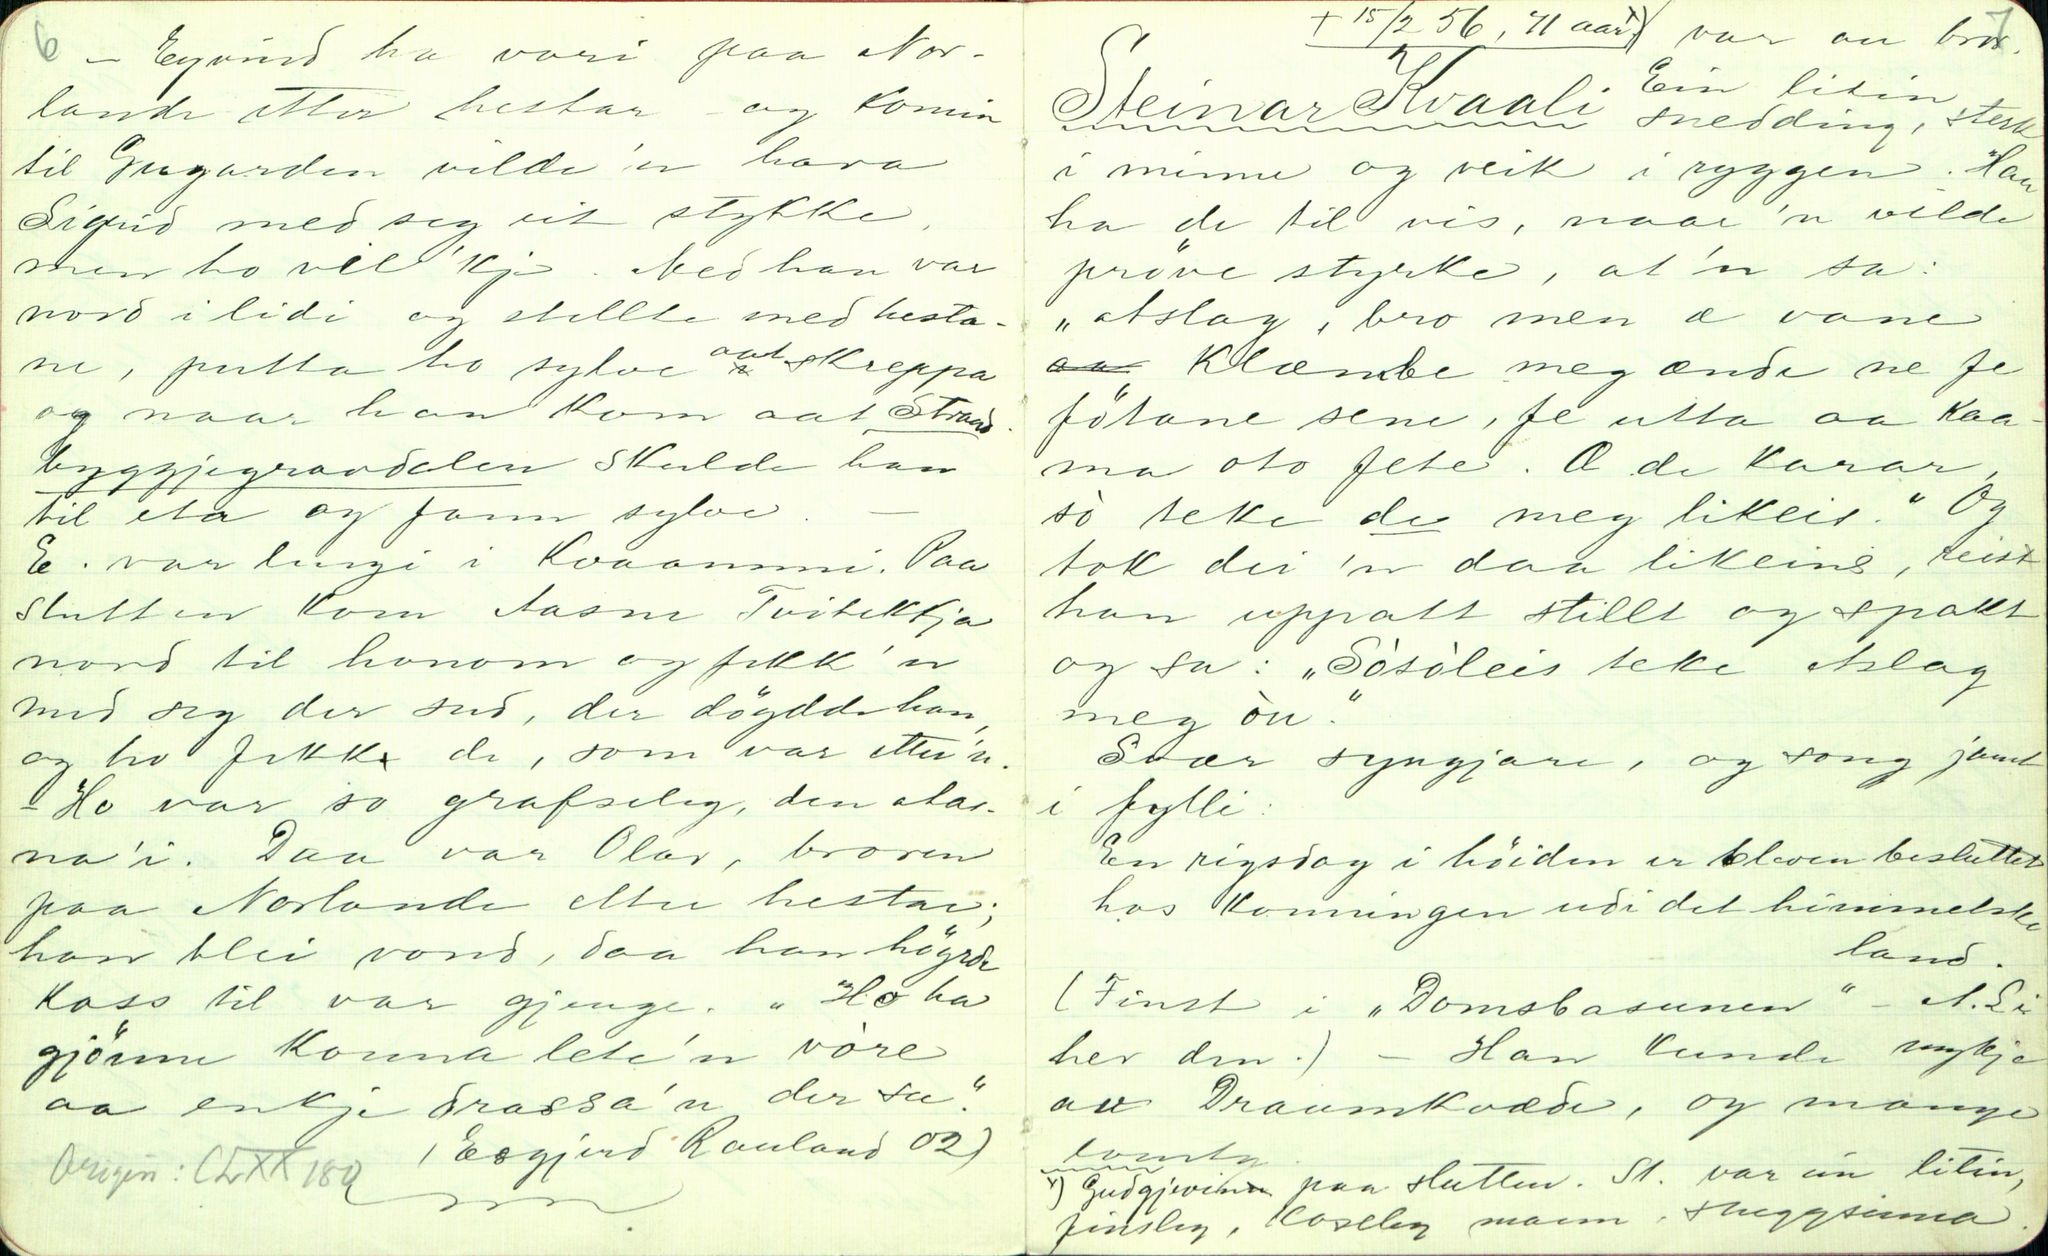 6
— Eyvind ha vori paa Nor-
lande etter hestar – og komin
til Gugarden vilde 'n hava
Sigrid med seg eit stykke,
men ho vil 'kje. Med han var
nord i lidi og stellte med hesta-
ne, putta ho sylve aat skreppa
og naar han kom aat Strand-
byggjegravdalen skulde han
til eta og fann sylve. —
E. var lengi i Kvaammi. Paa
slutten kom Aasne Tvitekkja
nord til honom og fekk 'n
med seg der sud, der döydde han,
og ho fekk de, som var etter 'n.
– Ho var so grafseleg, den Aas-
na 'i. Daa var Olav, broren
paa Norlande etter hestar;
han blei vond, daa han höyrde
koss til var gjenge. „Ho ha
gjönne konna lete 'n vòre
aa enkje drassa 'n der su."
(Esgjerd Rauland 02)
Origin: CLXX 180
7
+ 15/2 56, 71 aar x) var au bror.
Steinar Kvaali Ein liten
snedding, sterk
i minne og veik i ryggen. Han
ha de til vis, naar 'n vilde
pröve styrke, at 'n sa:
„Aslag, bro men æ vane
aa klæmbe meg ænde ne fe
fötane sene, fe utta aa kaa-
ma oto fete. Æ de karar,
sò teke de meg likeis." Og
tok dei 'n daa likeins, reist
han uppatt stillt og spakt
og sa: „Sòsòleis teke Aslag
meg òu."
Svær syngjare, og song jamt
i fylli:
En rigsdag i höiden er bleven besluttet
hos konningen udi det himmelske
land.
(Finst i „Domsbasunen" – A. Li
hev den.) – Han kunde mykje
av Draumkvæde, og mange
lomdy.
x) Gudgjevinn paa slutten. St. var ein liten,
finsleg, koseleg mann, skeggsinna.